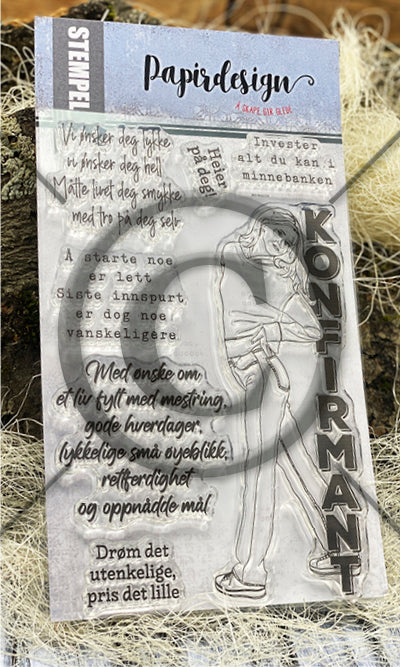 STEMPEL
Papirdesign
Å SKAPE GIR GLEDE
Vi ønsker deg lykke
vi ønsker deg hell
Måtte livet deg smykke
med tro på deg selv
Heier
på deg!
Invester
alt du kan i
minnebanken
Å starte noe
er lett
Siste innspurt
er dog noe
vanskeligere
KONFIRMANT
Med ønske om
et liv fylt med mestring,
gode hverdager,
lykkelige små øyeblikk,
rettferdighet
og oppnådde mål
Drøm det
utenkelige,
pris det lille